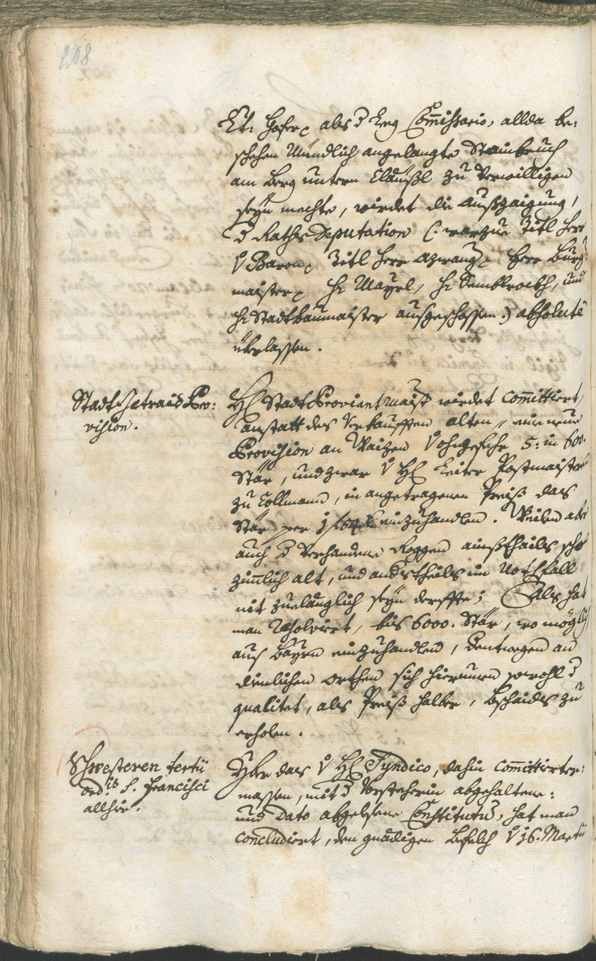 208
Et: Hofer als d Leg Commissario, allda be:
schehen Mündlich angelangte Stainbruch
am Berg untern Claußl zu Verwilligen
seyn mechte, wirdet die Außzaigung,
d Raths Deputation (: warzue Titl Herr
V Baron, Titl Herr Herr Burg:
maister, H Mayrl, H und
H Stadtbaumaister außgeschossen :) absolute
überlassen.
Stadt Getraid Pro:
vision.
H Stadt Proviantmaister wirdet committirt,
anstatt des Verkaufften alten, eine neue
Provision an Waizen V ohngefehr 5: in 600.
Stär, und zwar V H Postmaister
zu Collmann, in angetragenen Preiß das
Stär per einzuhandlen. Weilen aber
auch d Verhandene Roggen ainßthails schon
zimlich alt, und andsthails im Nothfall
nit zuelänglich seyn derffte; Als hat
man resolvirt, bis 6000. Stär, wo möglich
aus Bayrn einzuhandlen, an
dienlichen Orthen sich hierinnen sowohl d
qualitet, als Preiß halber, bschaids zu
erholen.
Schwesteren tertii
ord: S. Francisci
allhie.
Yber das V H Syndico, dahin committirter:
massen, mit d Vorsteherin abgehaltene:
und dato abgelesene Constitutum, hat man
concludiret, den gnädigen Befelch V 16. Martii